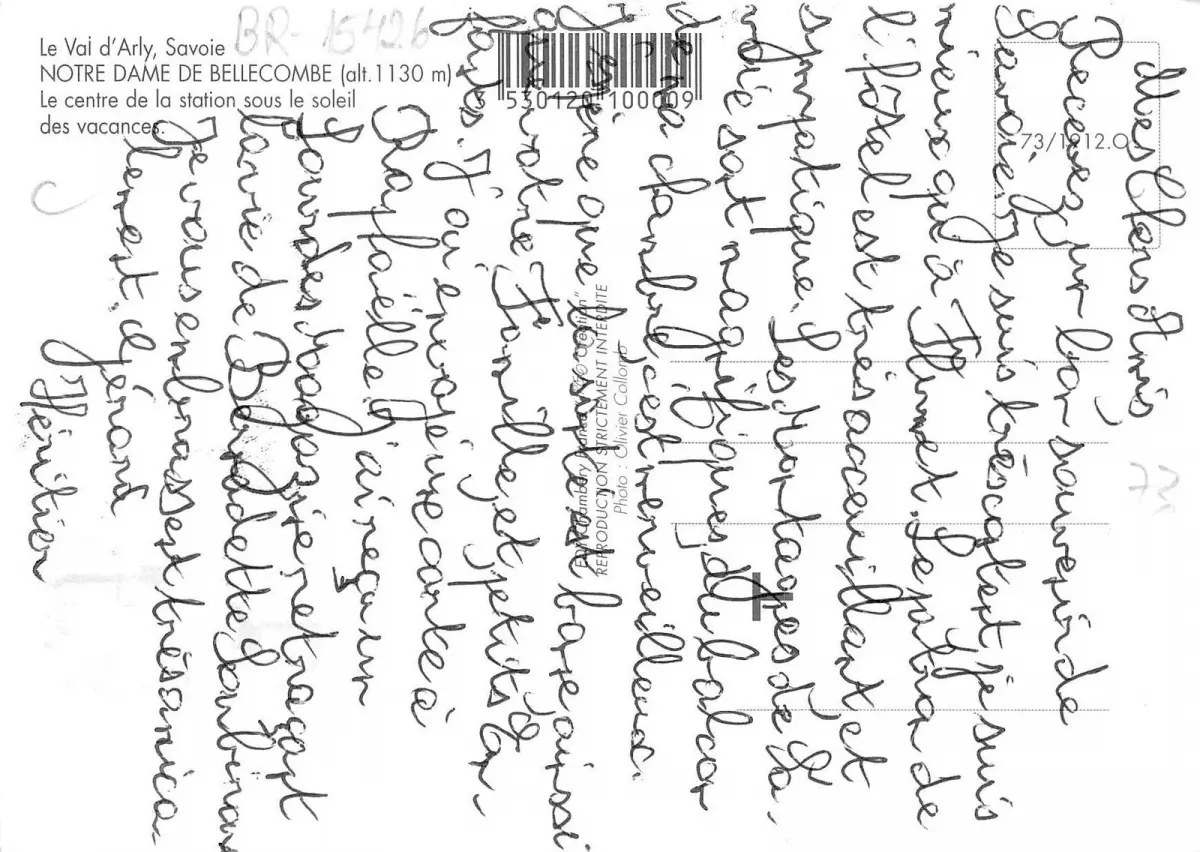 Le Val d'Arly, Savoie
BR-15426
NOTRE DAME DE BELLECOMBE (alt.1130 m)
Le centre de la station sous le soleil
des vacances.
530120 100009
73/1912.O
REPRODUCTION STRICTEMENT INTERDITE
Photo : Olivier Collomb
73
Mes Chers Amis
Recevez un bon souvenir de
Savoie je suis très content je suis
mieux qu'à Flumet. Le patron de
l'hôtel est très accueillant et
sympatique. Les Montagnes de la
Savoie sont magnifiques, du balcon
de ma chambre c'est merveilleux.
J'espère que
ainsi
que votre Famille et petits En-
fants. J'ai envoyé une carte à
Raphaëlle. J'ai reçu un
de Lourdes retraçant
la vie de Bernadette Soubirous
Je vous embrasse très amica-
lement. Gérard
Héritier